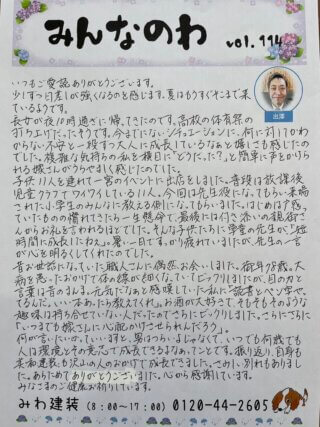 みんなのわ
vol.114
いつもご愛読ありがとうございます。
少しずつ日差しが強くなるのを感じます。夏はもうすぐそこまで来
ているようです。
出澤
長女が夜10時過ぎに帰ってきたのです。高校の体育祭の
打ち上げだったそうです。今までにないシチュエーションに、何に対してわか
らない不安と一段ずつ大人に成長しているなぁと嬉しさも感じたの
でした。複雑な気持ちの私を横目に"どうだった?"と簡単に声をかけら
れる嫁さんがうらやましく感じたのでした。
子供11人を連れて一宮のイベントに出店をしました。普段は放課後
児童クラブでワイワイしている11人。今回は先生役になってもらい来場
された小学生のみなさんに教える側になってもらいました。はじめは戸惑っ
ていたものの慣れてきたら一生懸命で、最後には付き添いの親御さ
んからお礼を言われるほどでした。そんな子供たちに学童の先生が「短
時間に成長したねぇ」。暑い一日です。かり疲れていましたが、先生の一言
が心を明るくしてくれたのでした。
昔お世話になっていた職人さんに偶然お会いしました。御年78歳。大
病を患ったおかげで体の線が細くなっていてビックリしましたが、目の力と
言葉は昔のまんま。元気だなぁと感嘆していた私に「読書とペン字やっ
てるんだ。いい本あったら教えてくれ」。お酒が大好きで、そもそもそのような
趣味は持ち合せていない人だったのでさらにビックリしました。さらにさらに
「いつまでも嫁さんに心配かけさせられんだろう」。
何が言いたいかっていいますと、男はつらいよじゃなくて、いつでも何歳でも
人は環境とその覚悟で成長できるなぁってことです。振り返り、自身も
美和建装も沢山の人のおかげで成長できました。さみしい別れもありまし
た。あらためてありがとうございました。心から感謝しています。
みなさまのご健康お祈りしています。
みわ建装 (8:00〜17:00) 0120-44-2605